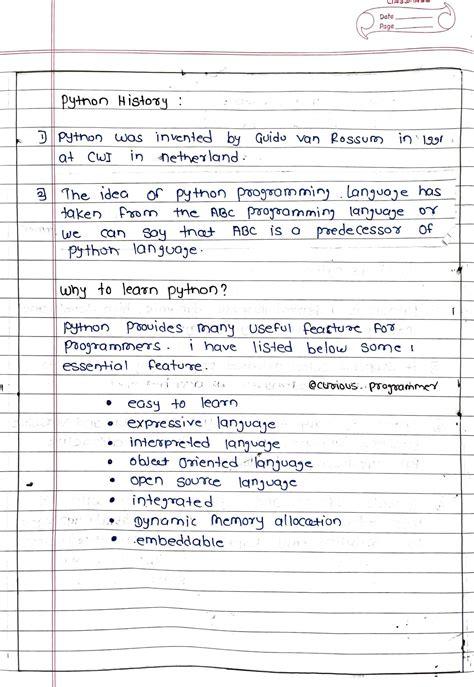 Classmate
Date
Page
Python History :
1) Python was invented by Guido van Rossum in 1991
at CWI in netherland.
2) The idea of python programming language has
taken from the ABC programming language or
we can say that ABC is a predecessor of
python language.
Why to learn python?
Python provides many useful feature for
programmers. i have listed below some
essential feature.
@curious_programmer
• easy to learn
• expressive language
• interpreted language
• object oriented language
• open source language
• integrated
• Dynamic memory allocation
• embeddable